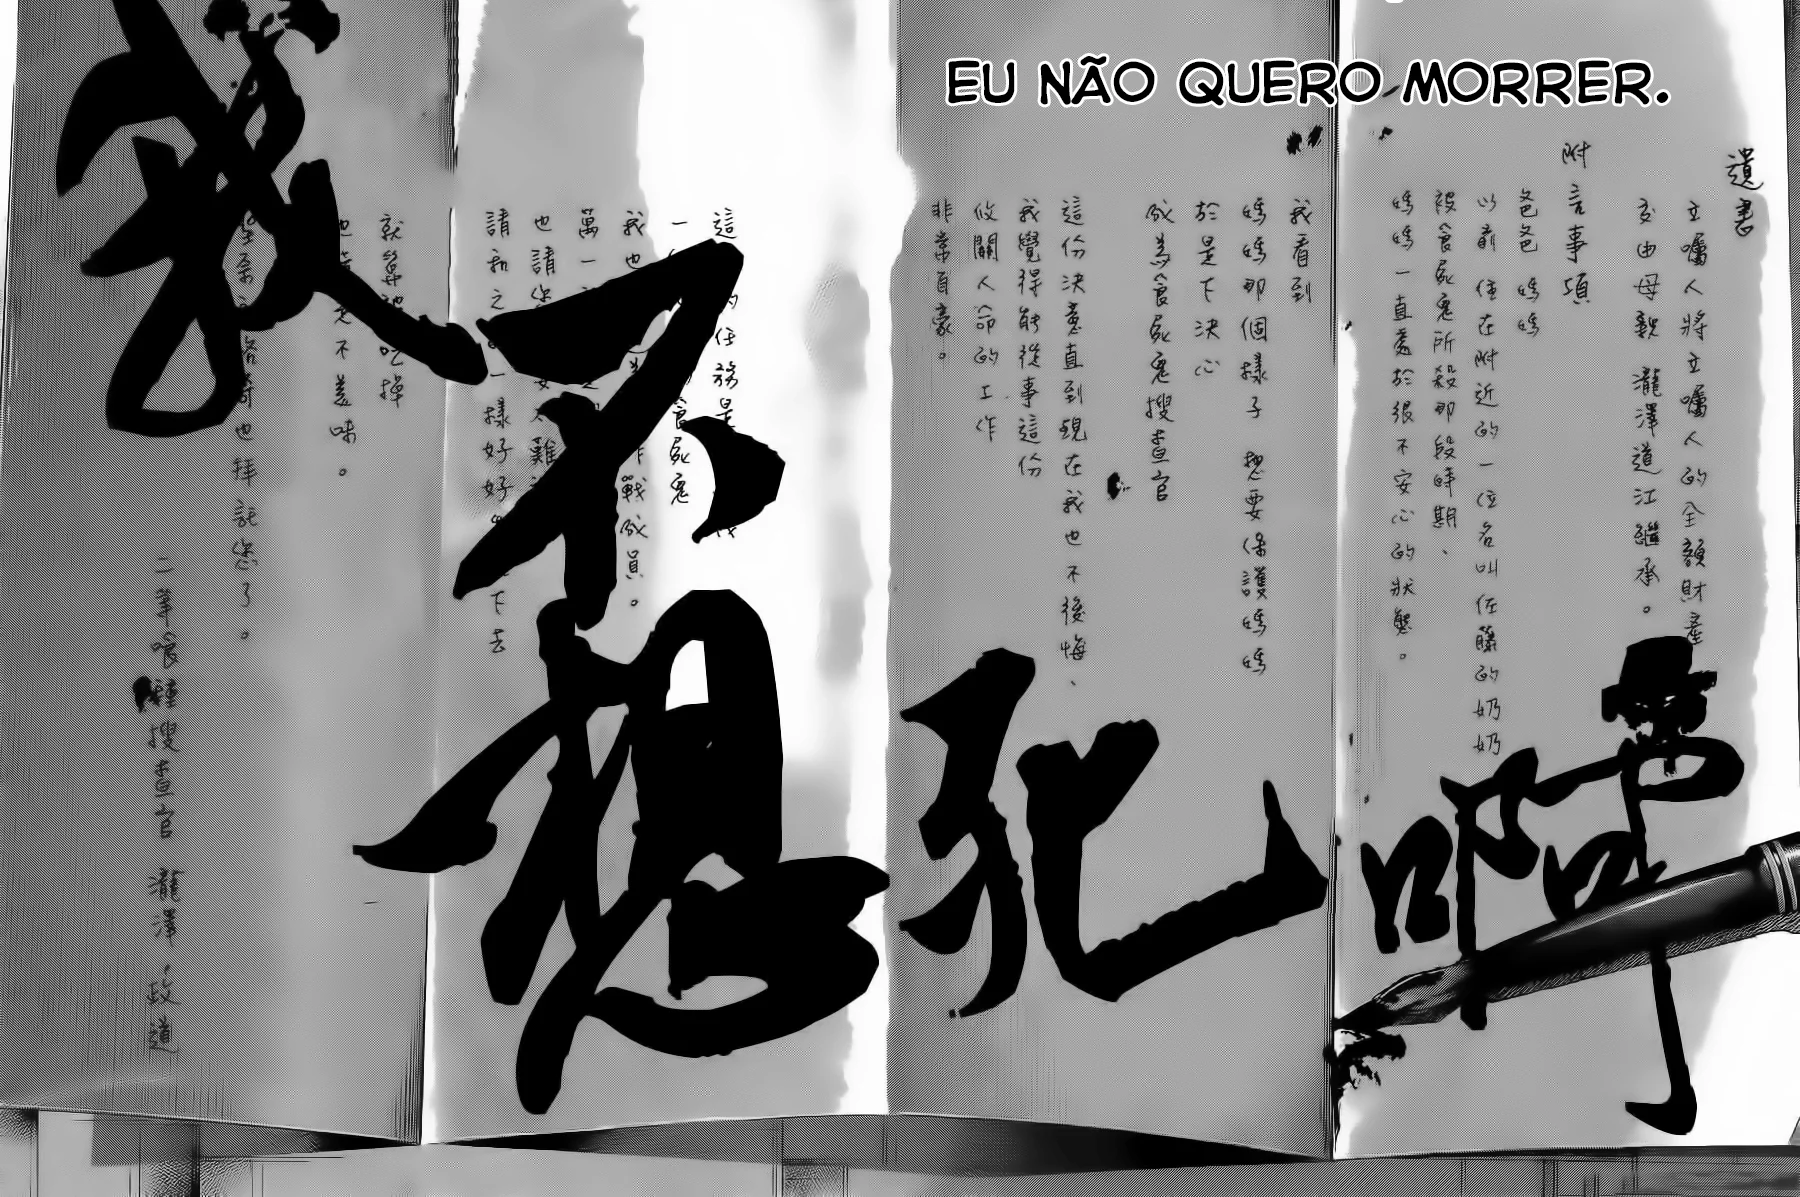 EU NÃO QUERO MORRER.
遺書
立囑人將立囑人的全額財產
交由母親 瀧澤道江繼承。
附言事項
爸爸 媽媽
以前住在附近的一位名叫佐藤的奶奶
被食屍鬼所殺那段時期、
媽媽一直處於很不安心的狀態。
我看到
媽媽那個樣子 想要保護媽媽
於是下決心
成為食屍鬼搜查官
這份決意直到現在我也不後悔、
我覺得能從事這份
攸關人命的工作
非常自豪。
這 的任務是
一 食屍鬼
我也 作戰成員。
萬一
也請您 難
請和之 一樣好好 下去
就算被吃掉
也 不美味。
也拜託您了。
二等喰種搜查官 瀧澤·政道
我不想死啊